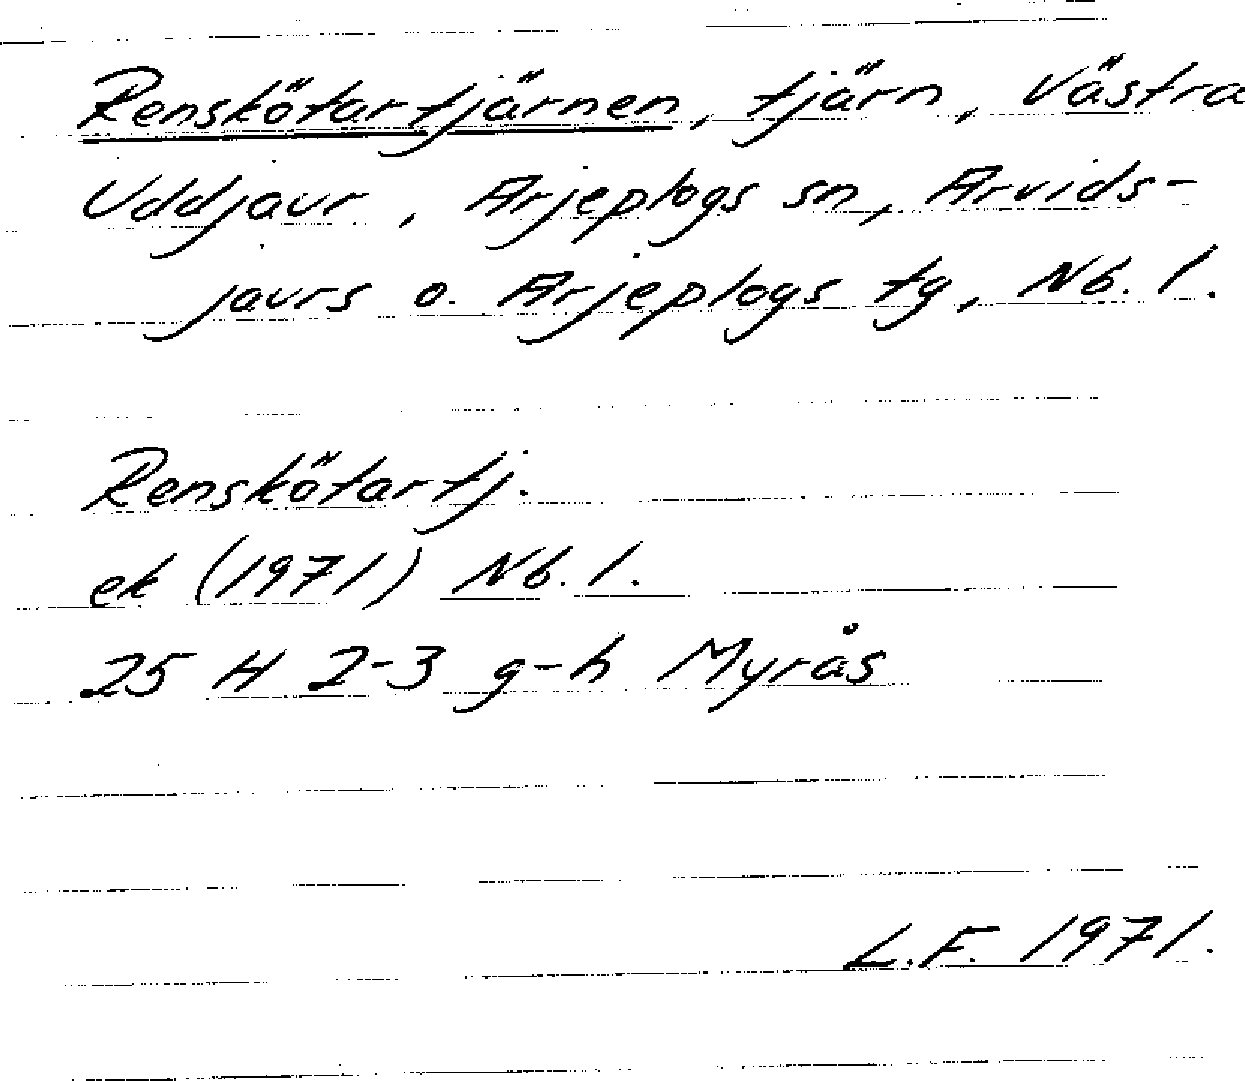 Renskötartjärnen, tjärn, Västra
Uddjaur, Arjeplogs sn, Arvids-
jaurs o. Arjeplogs tg, Nb. l.
Renskötartj.
ek (1971) Nb. l.
25 H 2-3 g-h Myrås
L.F. 1971.